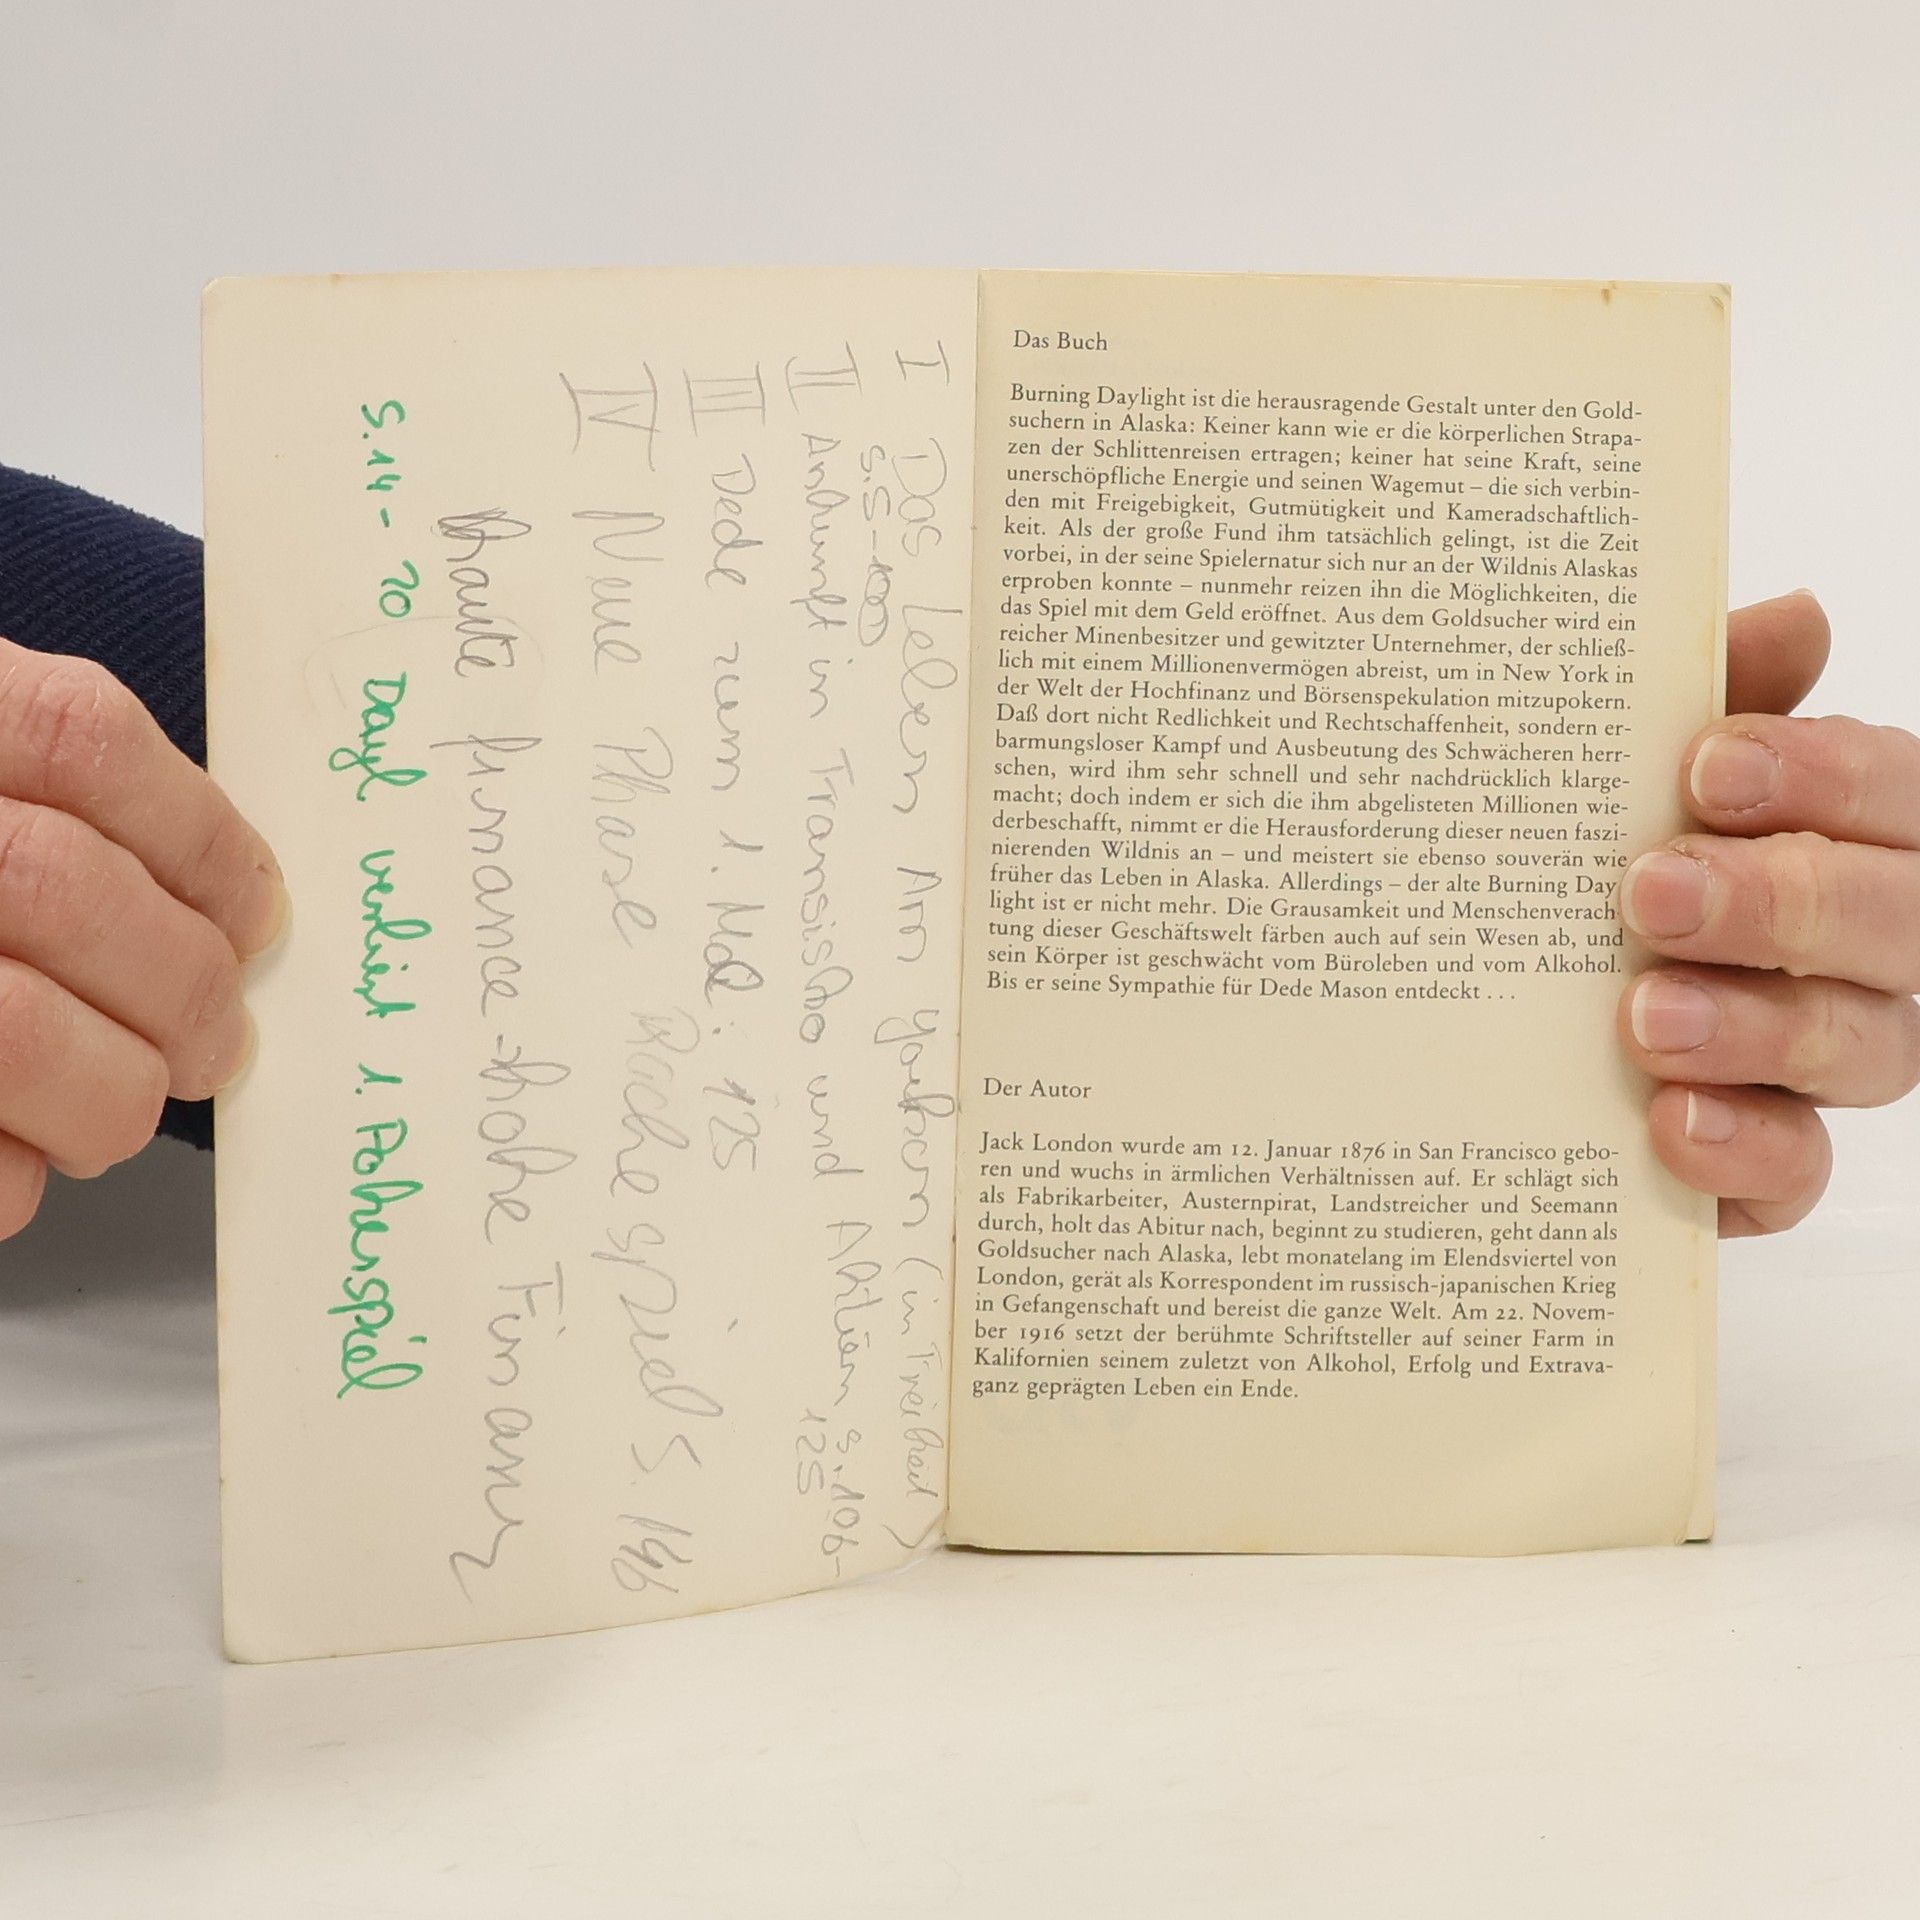 I Das Leben Am Youkon (in Freiheit)
S. 5-100
II Ankunft in Fransisko und Aktien S. 106-
125
III Dede zum 1. Mal: 125
IV Neue Phase Rachespiel S. 146
haute finance - hohe Finanz
S. 14 - 20 Dayl verliert 1. Pokerspiel
Das Buch
Burning Daylight ist die herausragende Gestalt unter den Gold-
suchern in Alaska: Keiner kann wie er die körperlichen Strapa-
zen der Schlittenreisen ertragen; keiner hat seine Kraft, seine
unerschöpfliche Energie und seinen Wagemut – die sich verbin-
den mit Freigebigkeit, Gutmütigkeit und Kameradschaftlich-
keit. Als der große Fund ihm tatsächlich gelingt, ist die Zeit
vorbei, in der seine Spielernatur sich nur an der Wildnis Alaskas
erproben konnte – nunmehr reizen ihn die Möglichkeiten, die
das Spiel mit dem Geld eröffnet. Aus dem Goldsucher wird ein
reicher Minenbesitzer und gewitzter Unternehmer, der schließ-
lich mit einem Millionenvermögen abreist, um in New York in
der Welt der Hochfinanz und Börsenspekulation mitzupokern.
Daß dort nicht Redlichkeit und Rechtschaffenheit, sondern er-
barmungsloser Kampf und Ausbeutung des Schwächeren herr-
schen, wird ihm sehr schnell und sehr nachdrücklich klarge-
macht; doch indem er sich die ihm abgelisteten Millionen wie-
derbeschafft, nimmt er die Herausforderung dieser neuen faszi-
nierenden Wildnis an – und meistert sie ebenso souverän wie
früher das Leben in Alaska. Allerdings – der alte Burning Day
light ist er nicht mehr. Die Grausamkeit und Menschenverach-
tung dieser Geschäftswelt färben auch auf sein Wesen ab, und
sein Körper ist geschwächt vom Büroleben und vom Alkohol.
Bis er seine Sympathie für Dede Mason entdeckt . . .
Der Autor
Jack London wurde am 12. Januar 1876 in San Francisco gebo-
ren und wuchs in ärmlichen Verhältnissen auf. Er schlägt sich
als Fabrikarbeiter, Austernpirat, Landstreicher und Seemann
durch, holt das Abitur nach, beginnt zu studieren, geht dann als
Goldsucher nach Alaska, lebt monatelang im Elendsviertel von
London, gerät als Korrespondent im russisch-japanischen Krieg
in Gefangenschaft und bereist die ganze Welt. Am 22. Novem-
ber 1916 setzt der berühmte Schriftsteller auf seiner Farm in
Kalifornien seinem zuletzt von Alkohol, Erfolg und Extrava-
ganz geprägten Leben ein Ende.